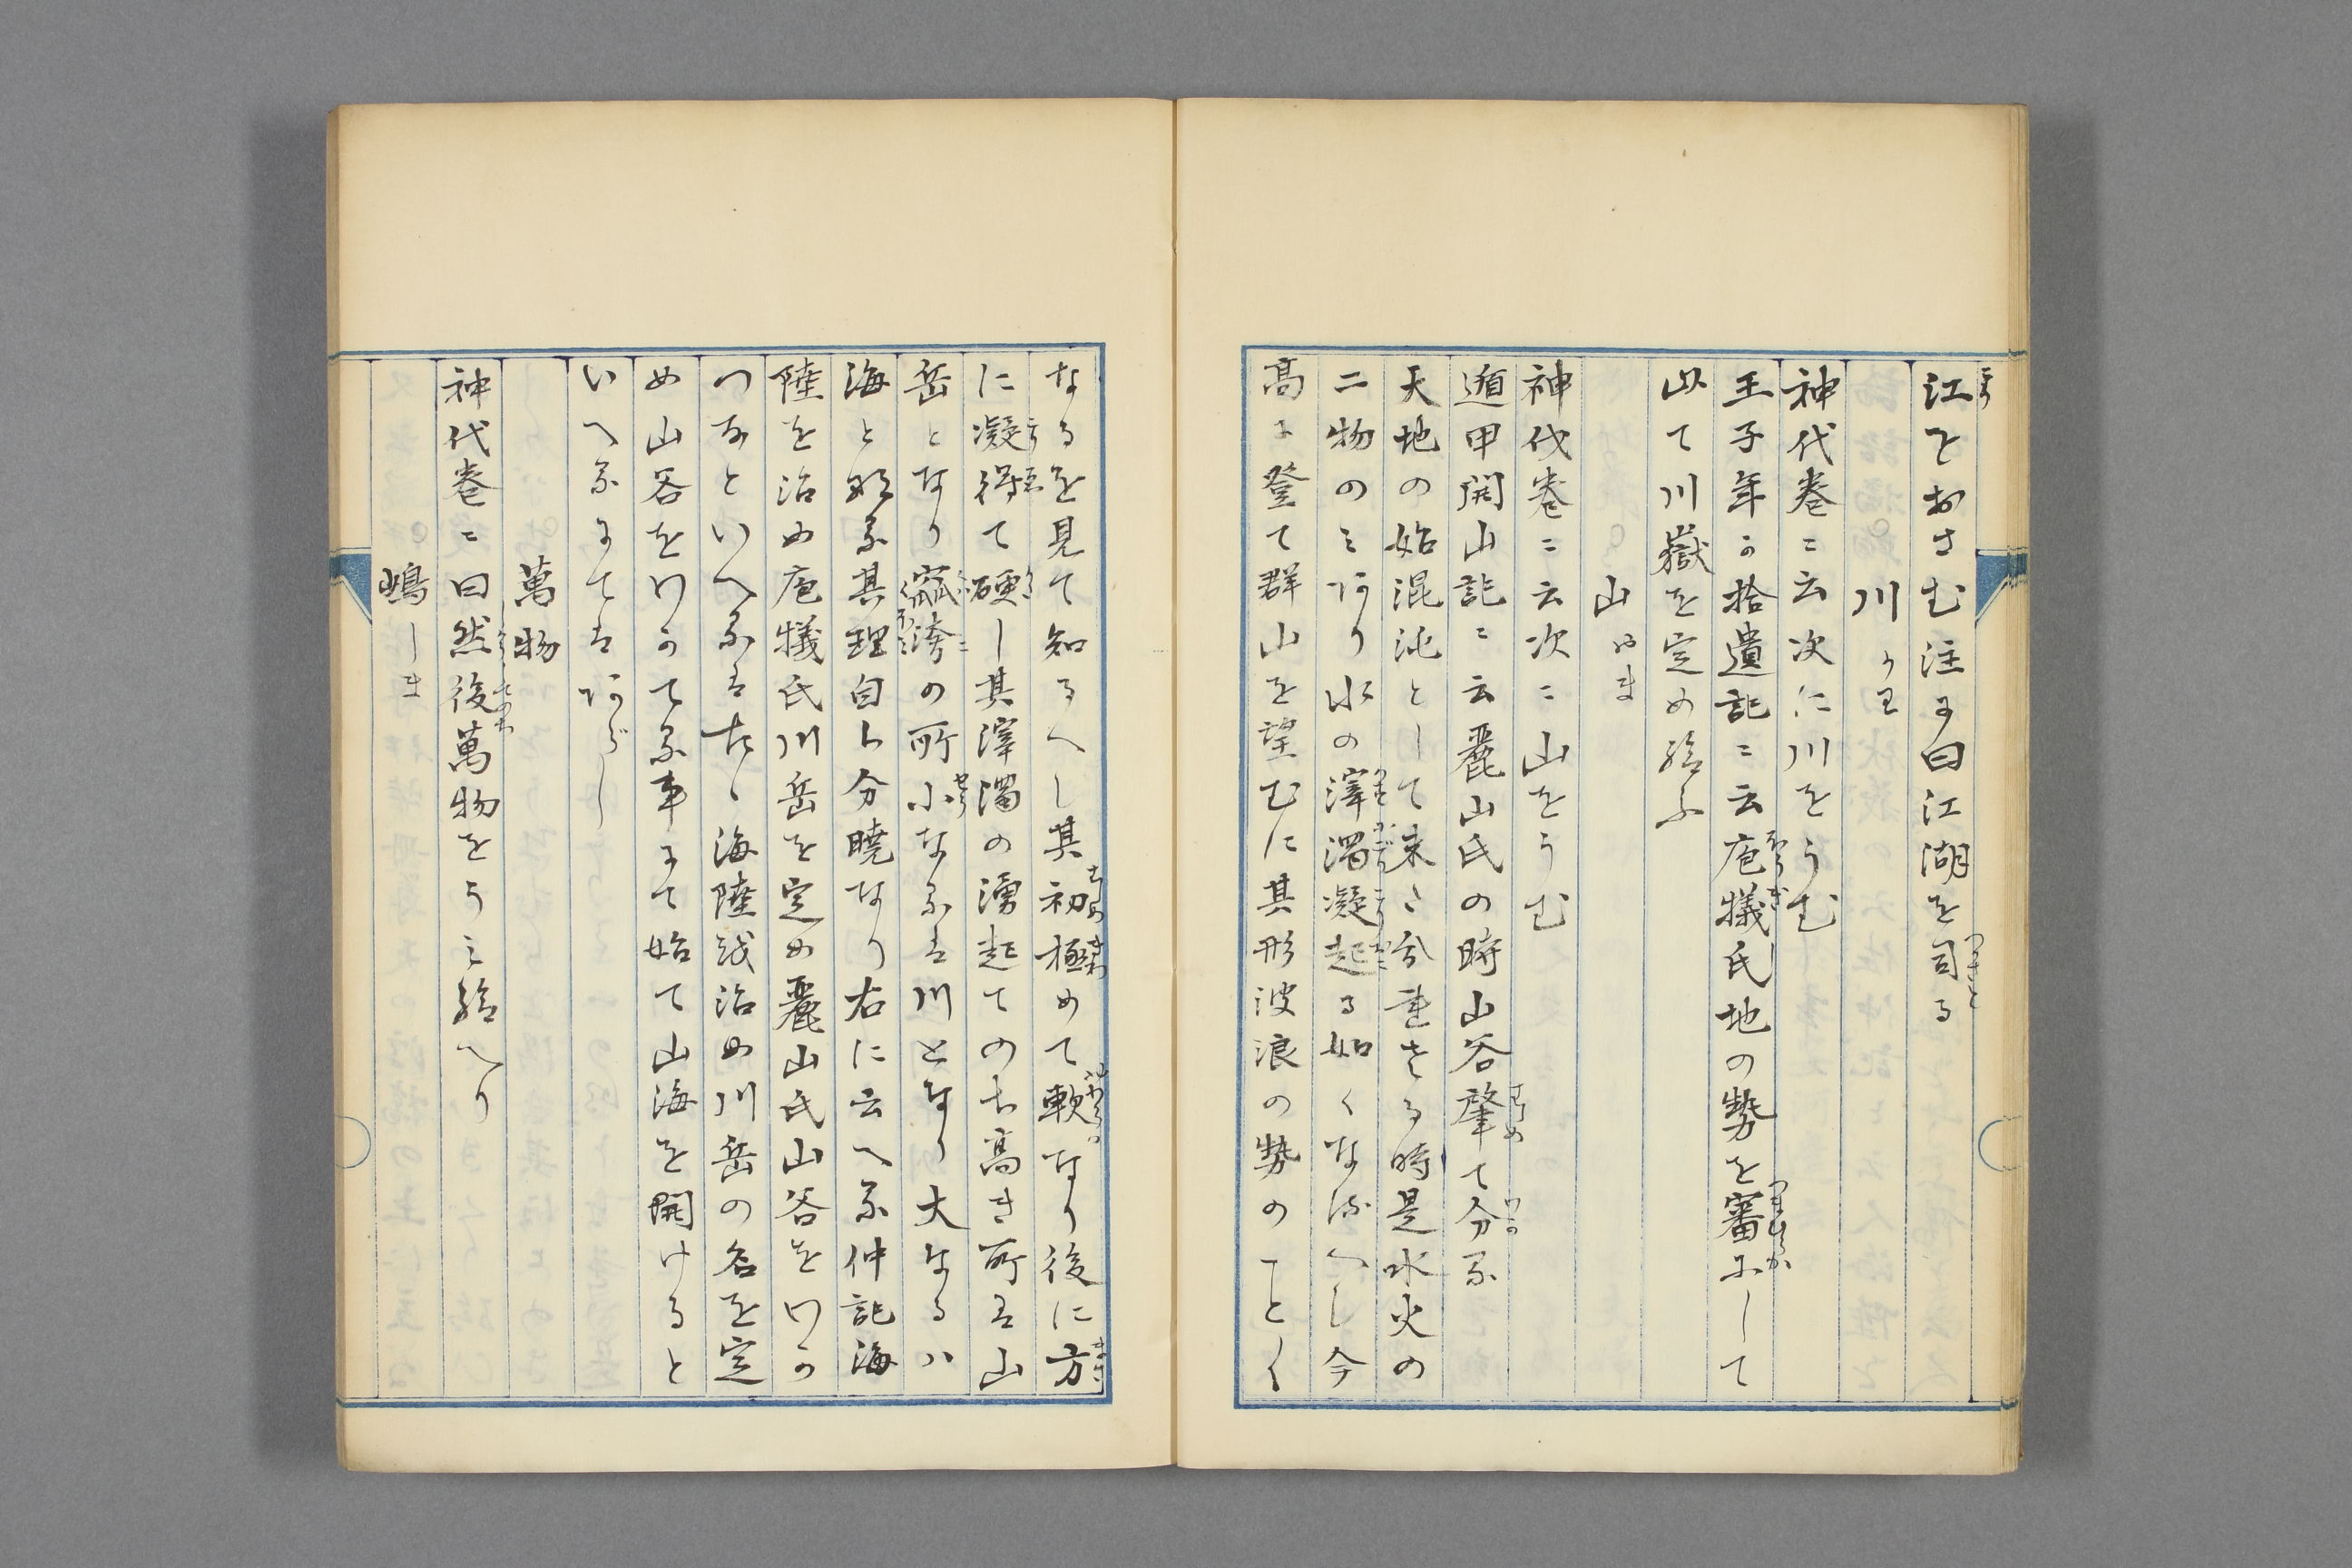 江をおさむ注に曰江湖を司る
川 かわ
神代巻ニ云次に川をうむ
王子年か拾遺記ニ云庖犠氏地の勢を審にして
以て川嶽を定め給ふ
山 やま
神代巻ニ云次ニ山をうむ
遁甲開山記ニ云麗山氏の時山谷肇て分る
天地の始混沌として未た分れさる時是水火の
二物のミあり水の滓濁凝起る如くなるへし今
高に登て群山を望むに其形波浪の勢のことく
なるを見て知るへし其初極めて軟なり後に方
に凝得て硬し其滓濁の湧起てのち高き所は山
岳となり窳洿の所小なるは川となり大なるハ
海と成る其理自ら分暁なり右に云へる仲記海
陸を治め庖犠氏川岳を定め麗山氏山谷をわか
つなといへるはたゝ海陸を治め川岳の名を定
め山谷をわかてる事にて始て山海を開けると
いへるにてはあらし
萬物
神代巻ニ曰然後萬物をうミ給へり
嶋 しま